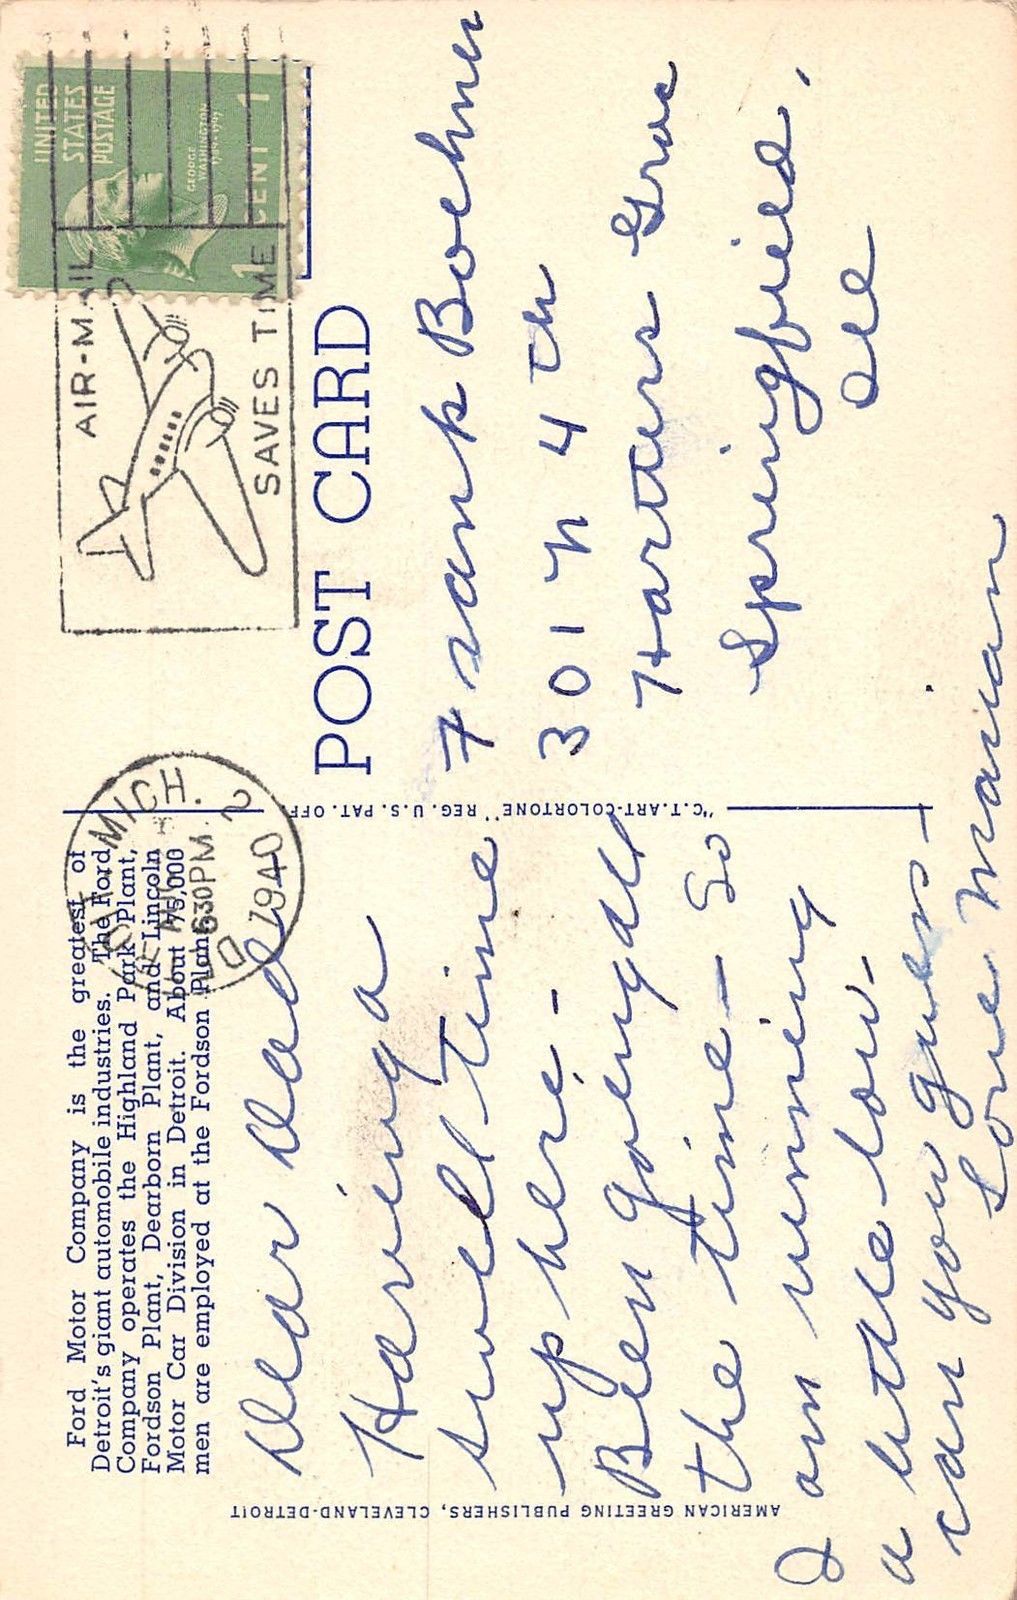 Ford Motor Company is the greatest of
Detroit's giant automobile industries. The Ford
Company operates the Highland Park Plant,
Fordson Plant, Dearborn Plant, and Lincoln
Motor Car Division in Detroit. About 75,000
men are employed at the Fordson Plant.
Dear Dad
Having a
swell time
up here. -
Been going all
the time - So
I am running
a little low. -
can you guess -
Love Marian
AMERICAN GREETING PUBLISHERS, CLEVELAND-DETROIT
"C.T. ART-COLORTONE" REG. U.S. PAT. OFF.
MICH.
630 PM
1940
AIR-MAIL
SAVES TIME
UNITED
STATES
POSTAGE
GEORGE
WASHINGTON
1789-1797
1 CENT 1
POST CARD
Frank Boehner
301 N 4 th
Harters Grac
Springfield,
Ill